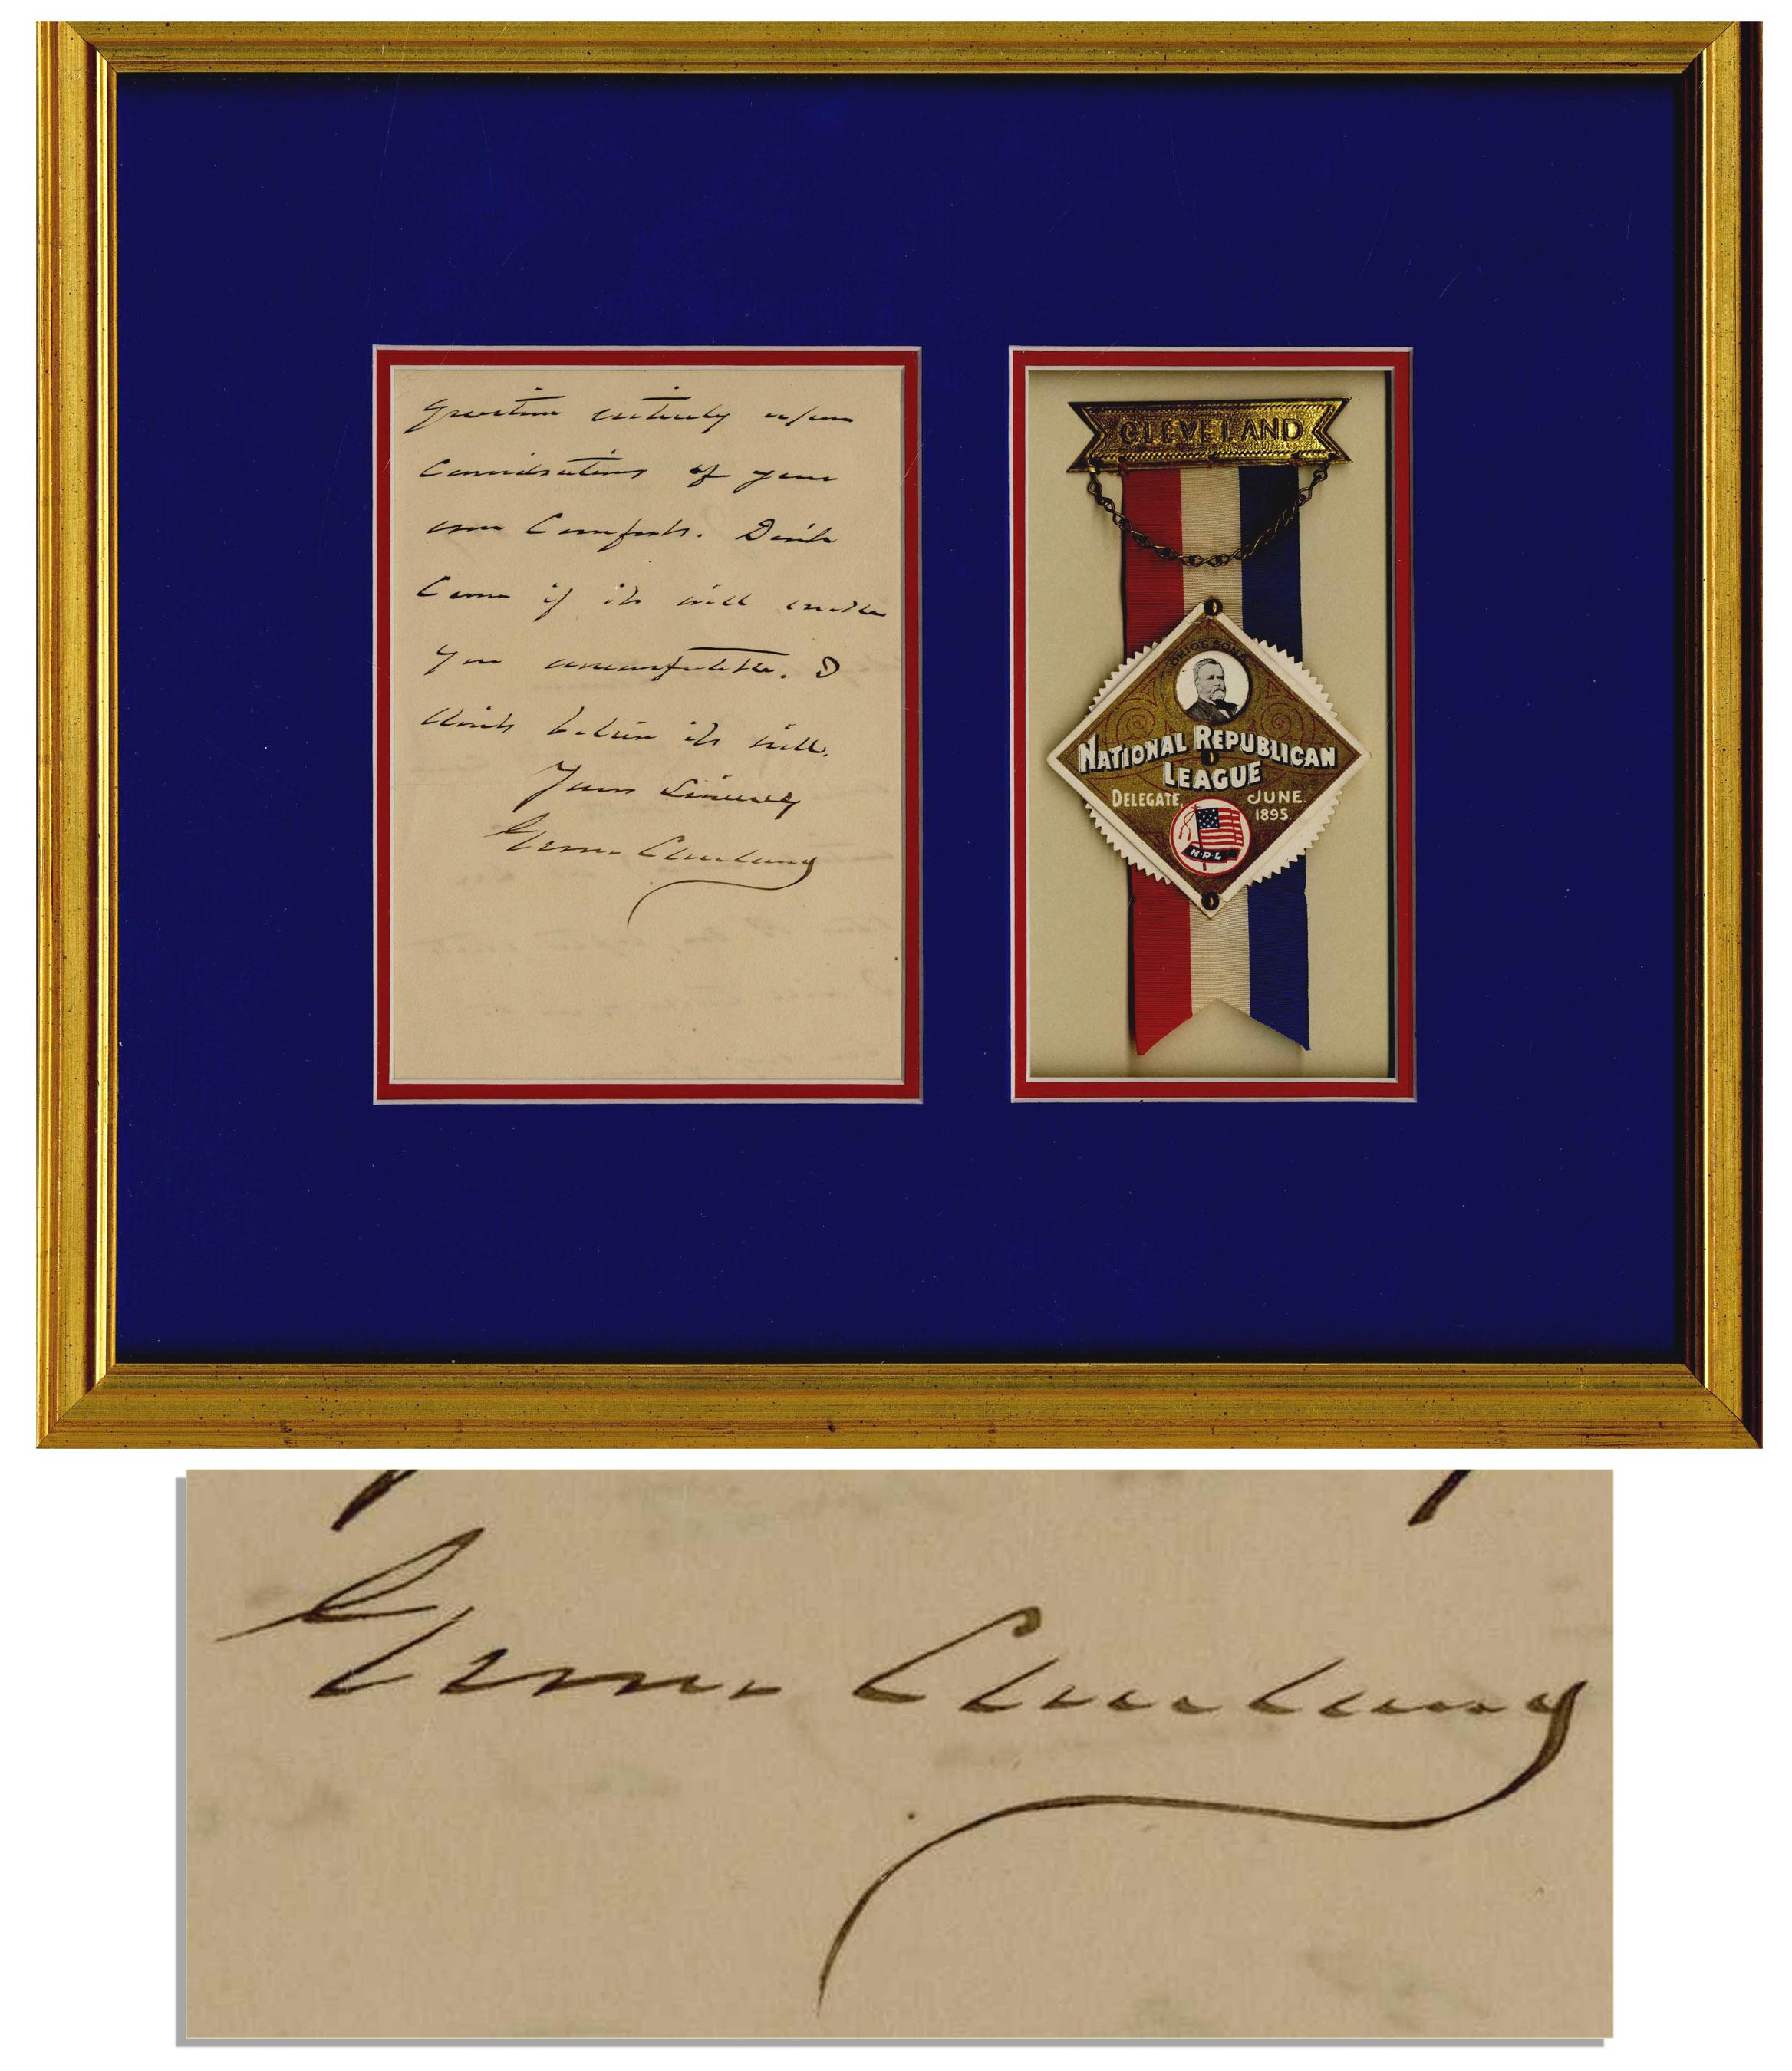 question entirely upon
considerations of your
own comfort. Don't
come if it will make
you uncomfortable. I
don't believe it will.
Yours Sincerely
Grover Cleveland
CLEVELAND
OHIO'S SONS
NATIONAL REPUBLICAN
LEAGUE
DELEGATE, JUNE.
1895
N·R·L
Grover Cleveland